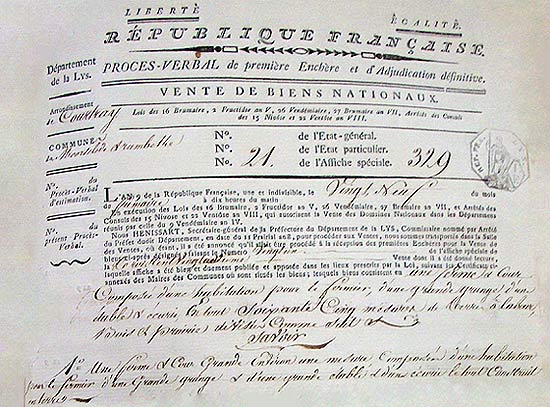 LIBERTÉ ÉGALITÉ.
RÉPUBLIQUE FRANÇAISE.
PROCES-VERBAL de première Enchère et d'Adjudication définitive.
VENTE DE BIENS NATIONAUX.
Lois des 16 Brumaire, 2 Fructidor an V, 26 Vendémiaire, 27 Brumaire an VII, Arrêtés des Consuls
des 15 Nivose et 22 Ventôse an VIII.
Département
de la Lys.
Arrondissement
de Courtray
COMMUNE
de
No. du
Procès-Verbal
d'estimation.
No. du
présent Procès-
Verbal.
No. de l'Etat-général.
No. de l'Etat particulier.
No. 21. de l'Affiche spéciale. 329
L'AN 9 de la République Française, une et indivisible, le Vingt Neuf du mois
de à dix heures du matin
En exécution des Lois des 16 Brumaire, 2 Fructidor an V, 26 Vendémiaire, 27 Brumaire an VII, et Arrêtés des
Consuls des 15 Nivose et 22 Ventôse an VIII, qui autorisent la Vente des Domaines Nationaux dans les Départemens
réunis par celle du 9 Vendémiaire an IV.
Nous HENISSART, Secrétaire-général de la Préfecture du Département de la LYS, Commissaire nommé par Arrêté
du Préfet dudit Département, du Prairial an 8, pour procéder aux Ventes, nous sommes transportés dans la Salle
des Ventes, où étant, il a été annoncé qu'il allait être procédé à la réception des premières Enchères pour la Vente de
bien ci-après désigné, faisant le Numéro Vingt un de l'affiche spéciale
de Vente dont il a été donné lecture,
laquelle affiche a été bien et duement publiée et apposée dans les lieux prescrits par la Loi, suivant les Certificats
annexés des Maires des Communes où sont situés les biens, lesquels biens consistent en une ferme & Cour
Composée d'une habitation pour le fermier, d'une grande grange, d'un
étable & écurie, En tout Soixante Cinq mesures de terre à labour,
Savoir
1o. Une ferme & Cour Grande Environ une mesure Composée d'une habitation
pour le fermier d'une Grande grange & d'une grande étable & d'une écurie le tout Construit